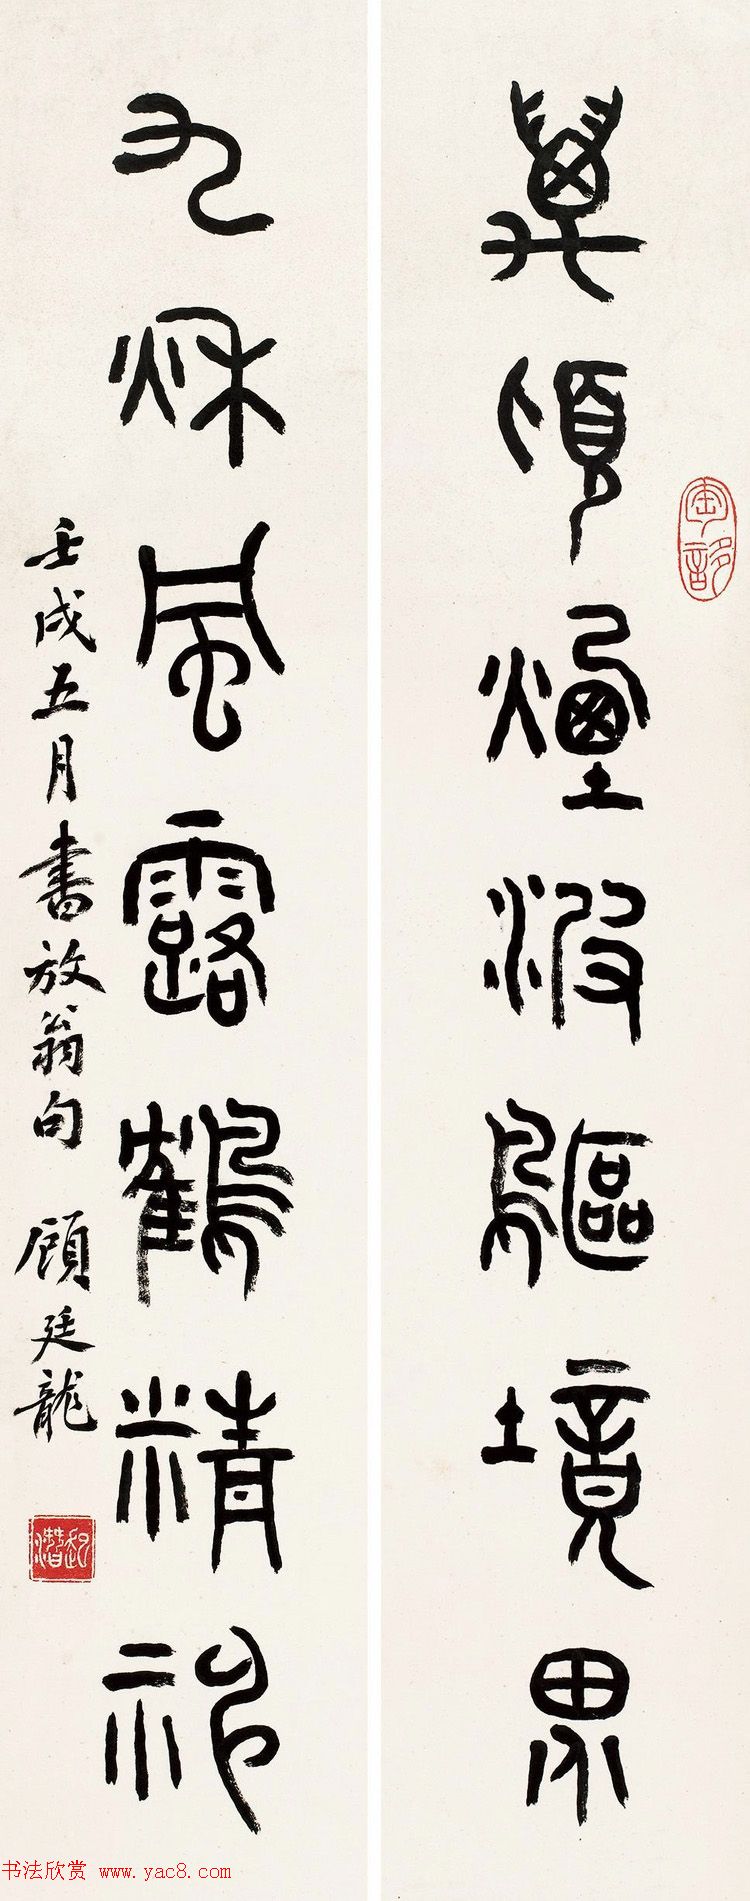 萬頃煙波鷗境界
九秋風露鶴精神
壬戌五月書放翁句 顧廷龍
起潛
书法欣赏 www.yac8.com